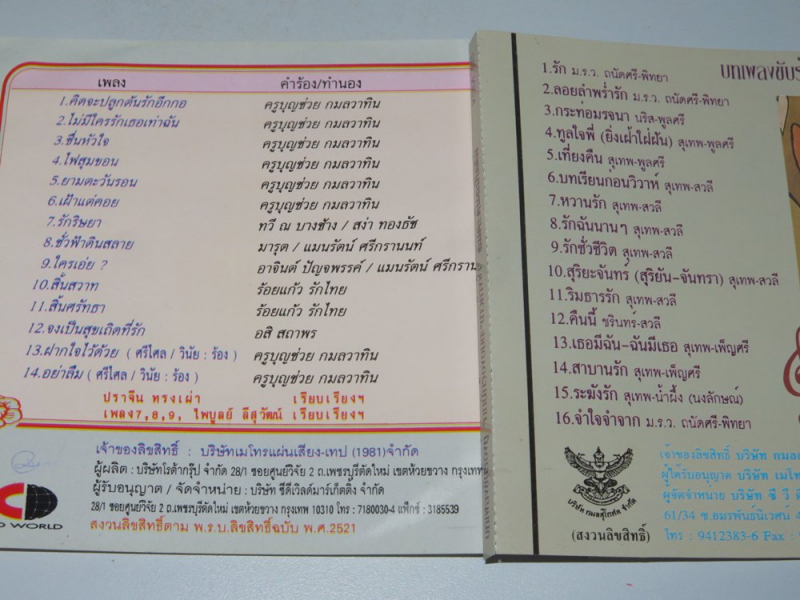 เพลง คำร้อง/ทำนอง
1.คิดจะปลูกต้นรักอีกกอ ครูบุญช่วย กมลวาทิน
2.ไม่มีใครรักเธอเท่าฉัน ครูบุญช่วย กมลวาทิน
3.ชื่นหัวใจ ครูบุญช่วย กมลวาทิน
4.ไฟสุมขอน ครูบุญช่วย กมลวาทิน
5.ยามตะวันรอน ครูบุญช่วย กมลวาทิน
6.เฝ้าแต่คอย ครูบุญช่วย กมลวาทิน
7.รักริษยา ทวี ณ บางช้าง / สง่า ทองธัช
8.ชั่วฟ้าดินสลาย มารุต / แมนรัตน์ ศรีกรานนท์
9.ใครเอ่ย ? อาจินต์ ปัญจพรรค์ / แมนรัตน์ ศรีกราน
10.สิ้นสวาท ร้อยแก้ว รักไทย
11.สิ้นศรัทธา ร้อยแก้ว รักไทย
12.จงเป็นสุขเถิดที่รัก อสิ สถาพร
13.ฝากใจไว้ด้วย ( ศรีไศล / วินัย : ร้อง ) ครูบุญช่วย กมลวาทิน
14.อย่าลืม ( ศรีไศล / วินัย : ร้อง ) ครูบุญช่วย กมลวาทิน
ปราจีน ทรงเผ่า เรียบเรียงฯ
เพลง7,8,9, ไพบูลย์ ลีสุวัฒน์ เรียบเรียงฯ
เจ้าของลิขสิทธิ์ : บริษัทเมโทรแผ่นเสียง-เทป (1981)จำกัด
ผู้ผลิต : บริษัทโรต้ากรุ๊ป จำกัด 28/1 ซอยศูนย์วิจัย 2 ถ.เพชรบุรีตัดใหม่ เขตห้วยขวาง กรุงเทพ
ผู้รับอนุญาต / จัดจำหน่าย : บริษัท ซีดีเวิลด์มาร์เก็ตติ้ง จำกัด
28/1 ซอยศูนย์วิจัย 2 ถ.เพชรบุรีตัดใหม่ เขตห้วยขวาง กรุงเทพ 10310 โทร : 7180030-4 แฟ็กซ์ : 3185539
สงวนลิขสิทธิ์ตาม พ.ร.บ.ลิขสิทธิ์ฉบับ พ.ศ.2521
CD
D WORLD
บทเพลงขับร้
1.รัก ม.ร.ว. ถนัดศรี-พิทยา
2.ลอยลำพร่ำรัก ม.ร.ว. ถนัดศรี-พิทยา
3.กระท่อมรจนา นริส-พูลศรี
4.ทูลใจพี่ (ยิ่งเฝ้าใฝ่ฝัน) สุเทพ-พูลศรี
5.เที่ยงคืน สุเทพ-พูลศรี
6.บทเรียนก่อนวิวาห์ สุเทพ-สวลี
7.หวานรัก สุเทพ-สวลี
8.รักฉันนานๆ สุเทพ-สวลี
9.รักชั่วชีวิต สุเทพ-สวลี
10.สุริยะจันทร์ (สุริยัน-จันทรา) สุเทพ-สวลี
11.ริมธารรัก สุเทพ-สวลี
12.คืนนี้ ชรินทร์-สวลี
13.เธอมีฉัน-ฉันมีเธอ สุเทพ-เพ็ญศรี
14.สาบานรัก สุเทพ-เพ็ญศรี
15.ระฆังรัก สุเทพ-น้ำผึ้ง (นงลักษณ์)
16.จำใจจำจาก ม.ร.ว. ถนัดศรี-พิทยา
บริษัท กมลสุโกศล จำกัด
(สงวนลิขสิทธิ์)
เจ้าของลิขสิทธิ์ บริษัท กมล
ผู้ได้รับอนุญาต บริษัท เมโท
ผู้จัดจำหน่าย บริษัท ซี วี
61/34 ซ.อมรพันธ์นิเวศน์ 4
โทร : 9412383-6 Fax :